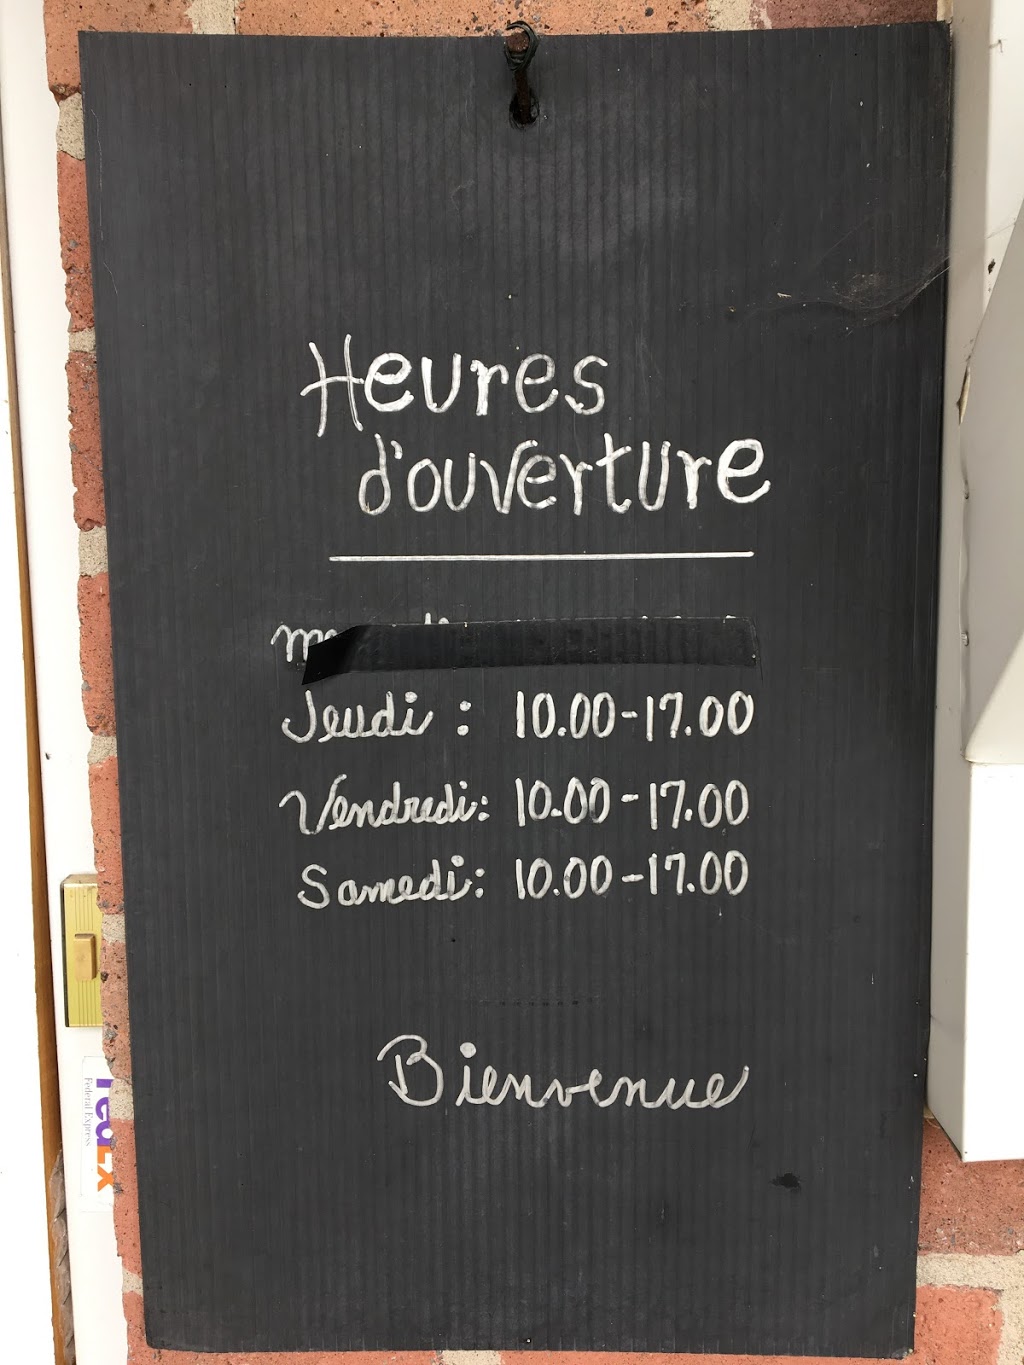 Heures
d'ouverture
Jeudi : 10.00-17.00
Vendredi: 10.00-17.00
Samedi: 10.00-17.00
Bienvenue
FedEx
Federal Express